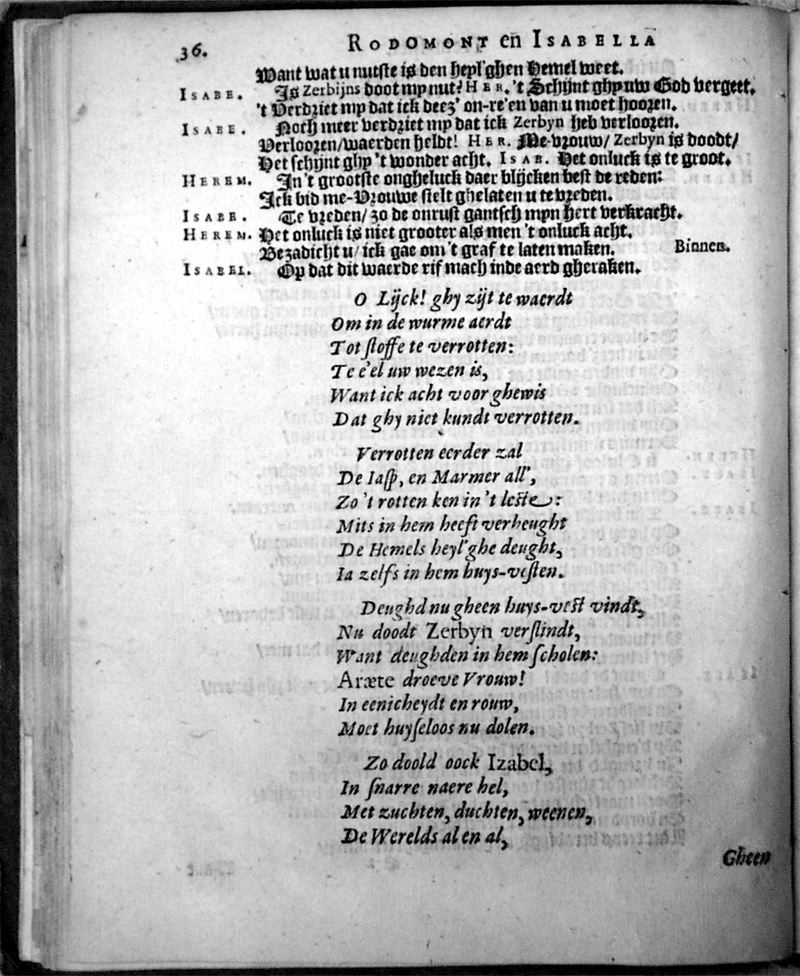 36. RODOMONT en ISABELLA
Want wat u nutste is den heyl'ghen Hemel weet.
ISABE. Is Zerbijns doot my nut? HER. 't Schijnt ghy uw God vergeet.
't Verdriet my dat ick deez' on-re'en van u moet hooren.
ISABE. Noch meer verdriet my dat ick Zerbyn heb verlooren.
Verlooren/ waerden heldt! HER. Me-vrouw/ Zerbyn is doodt/
Het schijnt ghy 't wonder acht. ISAB. Het onluck is te groot.
HEREM. In 't grootste ongheluck daer blijcken best de reden:
Ick bid me-Vrouwe stelt ghelaten u te vreden.
ISABE. Te vreden/ zo de onrust gantsch mijn hert verkracht.
HEREM. Het onluck is niet grooter als men 't onluck acht.
Bezadicht u/ ick gae om 't graf te laten maken. Binnen.
ISABEL. Op dat dit waerde rif mach inde aerd gheraken.
O Lijck! ghy zijt te waerdt
Om in de wurme aerdt
Tot stoffe te verrotten:
Te e'el uw wezen is,
Want ick acht voor ghewis
Dat ghy niet kundt verrotten.
Verrotten eerder zal
De Iasp, en Marmer all',
Zo 't rotten ken in 't leste:
Mits in hem heeft verheught
De Hemels heyl'ghe deught,
Ia zelfs in hem huys-vesten.
Deughd nu gheen huys-vest vindt,
Nu doodt Zerbyn verslindt,
Want deughden in hem scholen:
Aræte droeve Vrouw!
In eenicheydt en rouw,
Moet huyseloos nu dolen.
Zo doold oock Izabel,
In snarre naere hel,
Met zuchten, duchten, weenen,
De Werelds al en al,
Gheen